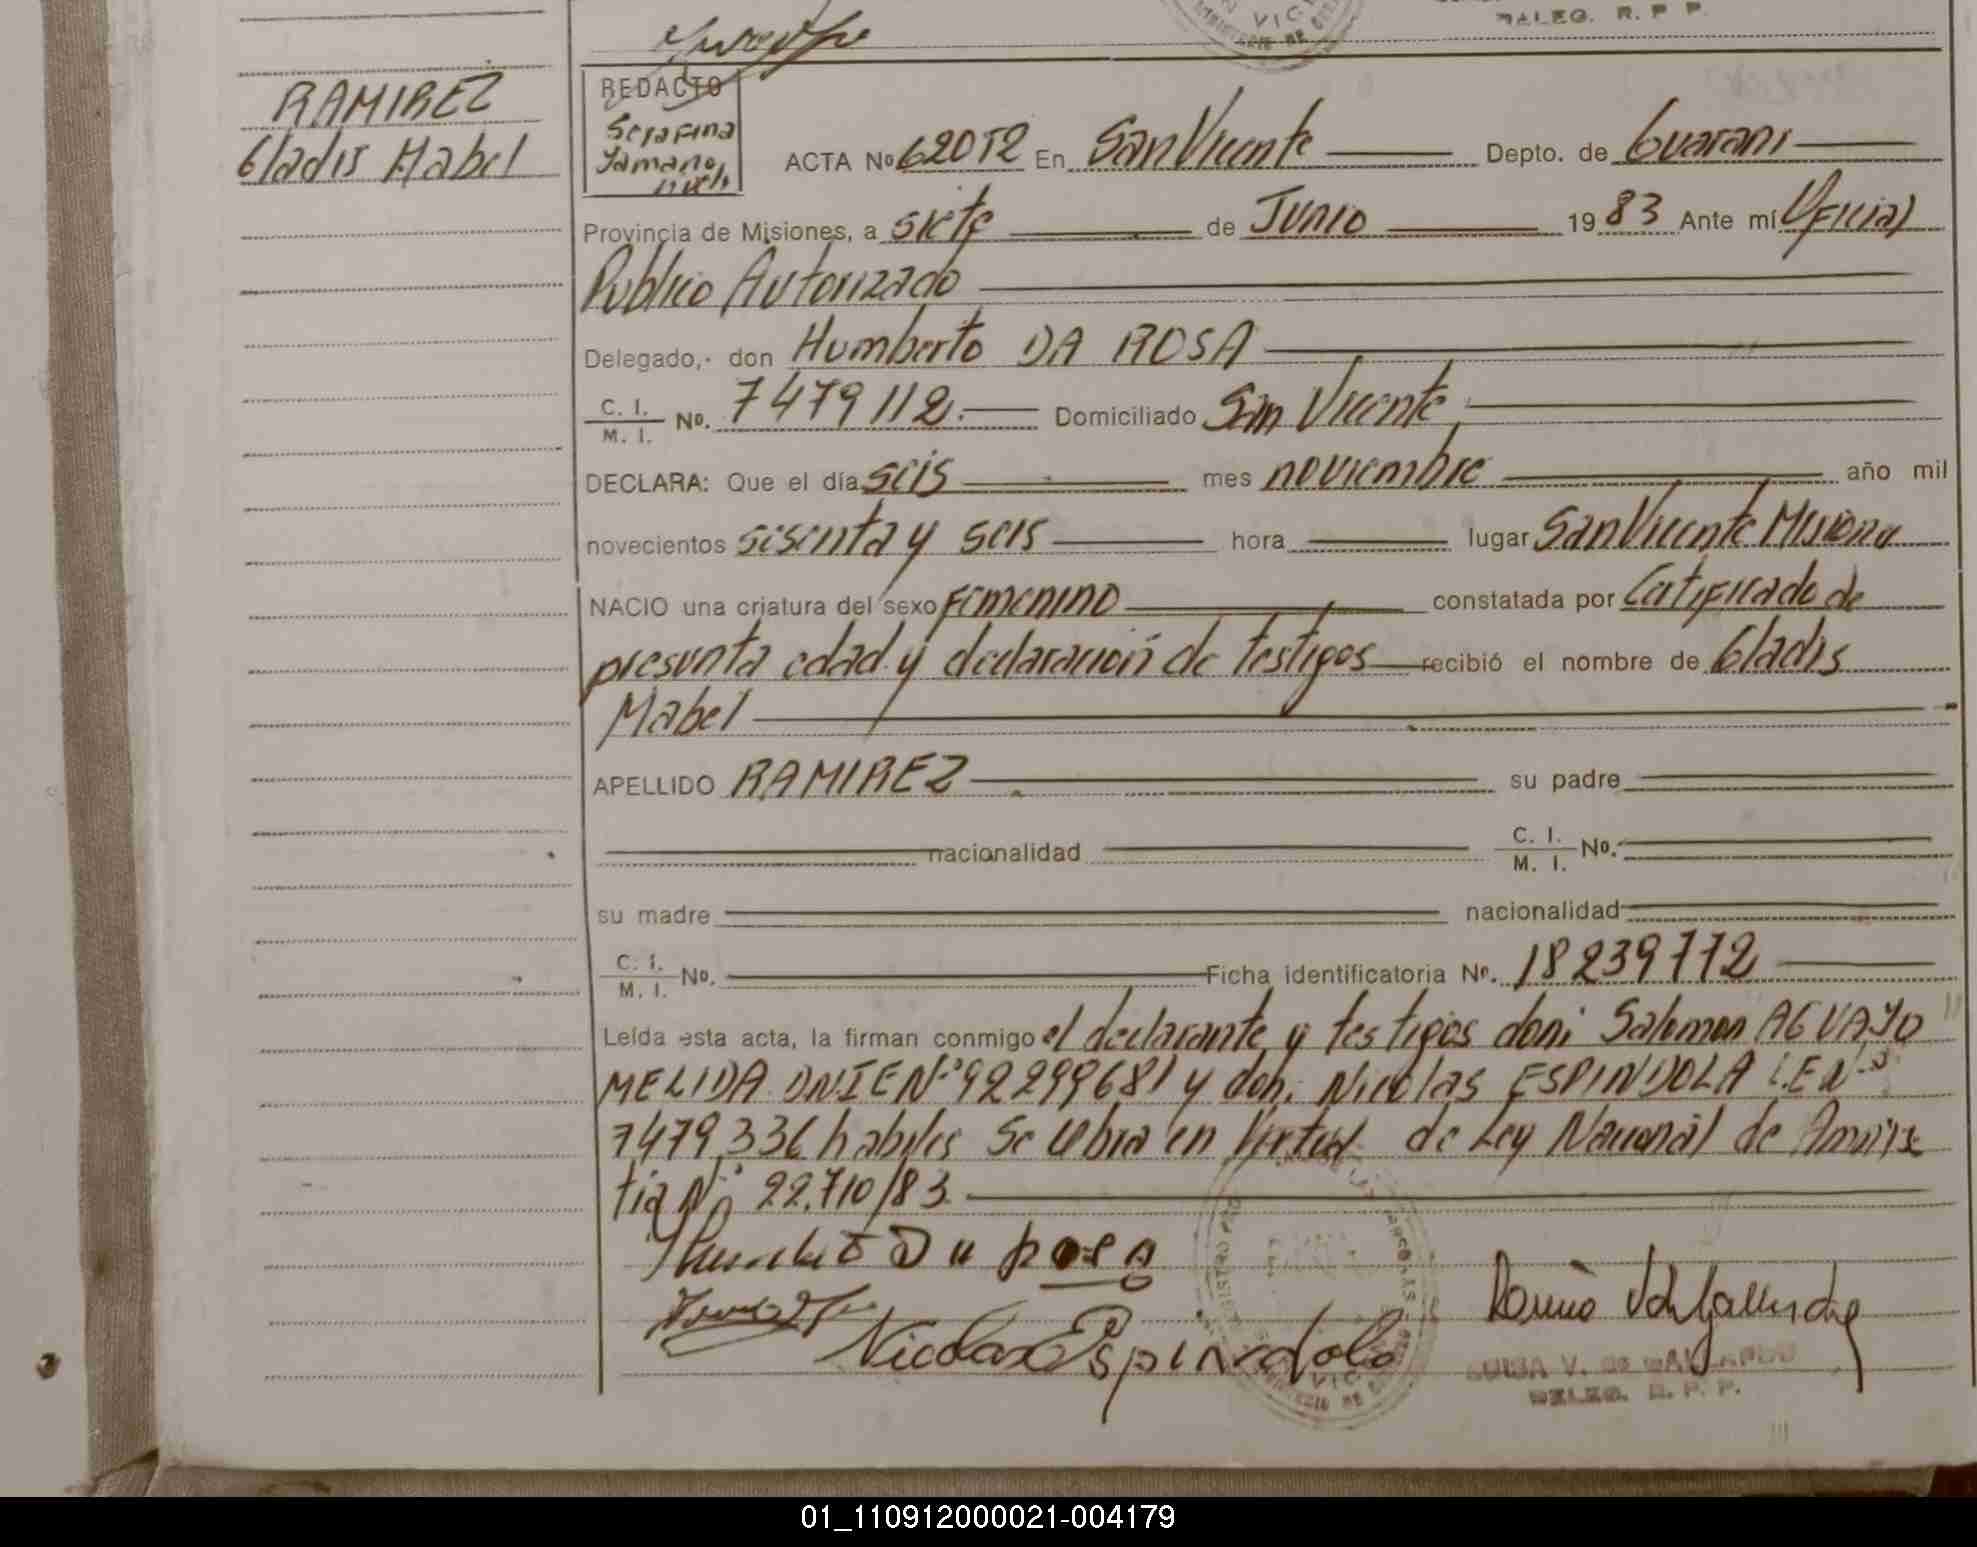 DALEG. R. P P.
RAMIREZ
Gladis Mabel
REDACTO
Serafina
ACTA Nº 62052 En San Vicente Depto. de Guarani
Provincia de Misiones, a siete de Junio 19 83 Ante mí Oficial
Publico Autorizado
Delegado,- don Humberto DA ROSA
C. I.
M. I. Nº. 7479112.- Domiciliado San Vicente
DECLARA: Que el día seis mes noviembre año mil
novecientos sesenta y seis hora lugar San Vicente Misiones
NACIO una criatura del sexo Femenino constatada por Certificado de
presunta edad y declaración de testigos recibió el nombre de Gladis
Mabel
APELLIDO RAMIREZ su padre
nacionalidad C. I.
M. I. Nº.
su madre nacionalidad
C. I.
M. I. Nº. Ficha identificatoria Nº. 18239772
Leída esta acta, la firman conmigo el declarante y testigos don: Salomon AGUAYO
MELIDA DNIE Nº 92299681 y don: Nicolas ESPINDOLA L.E Nº
7479.336 habiles Se labra en Virtud de Ley Nacional de Amnis
tia Nº 22.710/83.
Humberto Da Rosa
Nicolas Espindola
LUISA V. DE GALLARDO
DELEG. R. P. P.
01_110912000021-004179